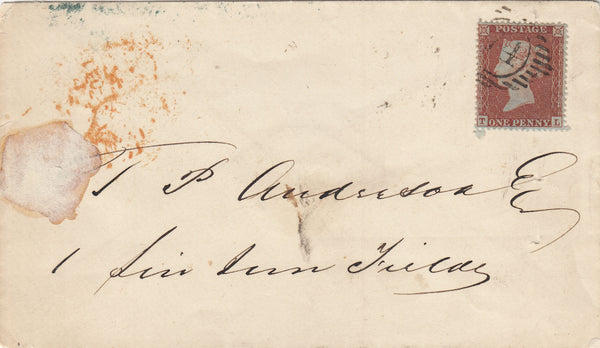 POSTAGE
T ONE PENNY L
T P Anderson Esq
1 Lin Inn Fields